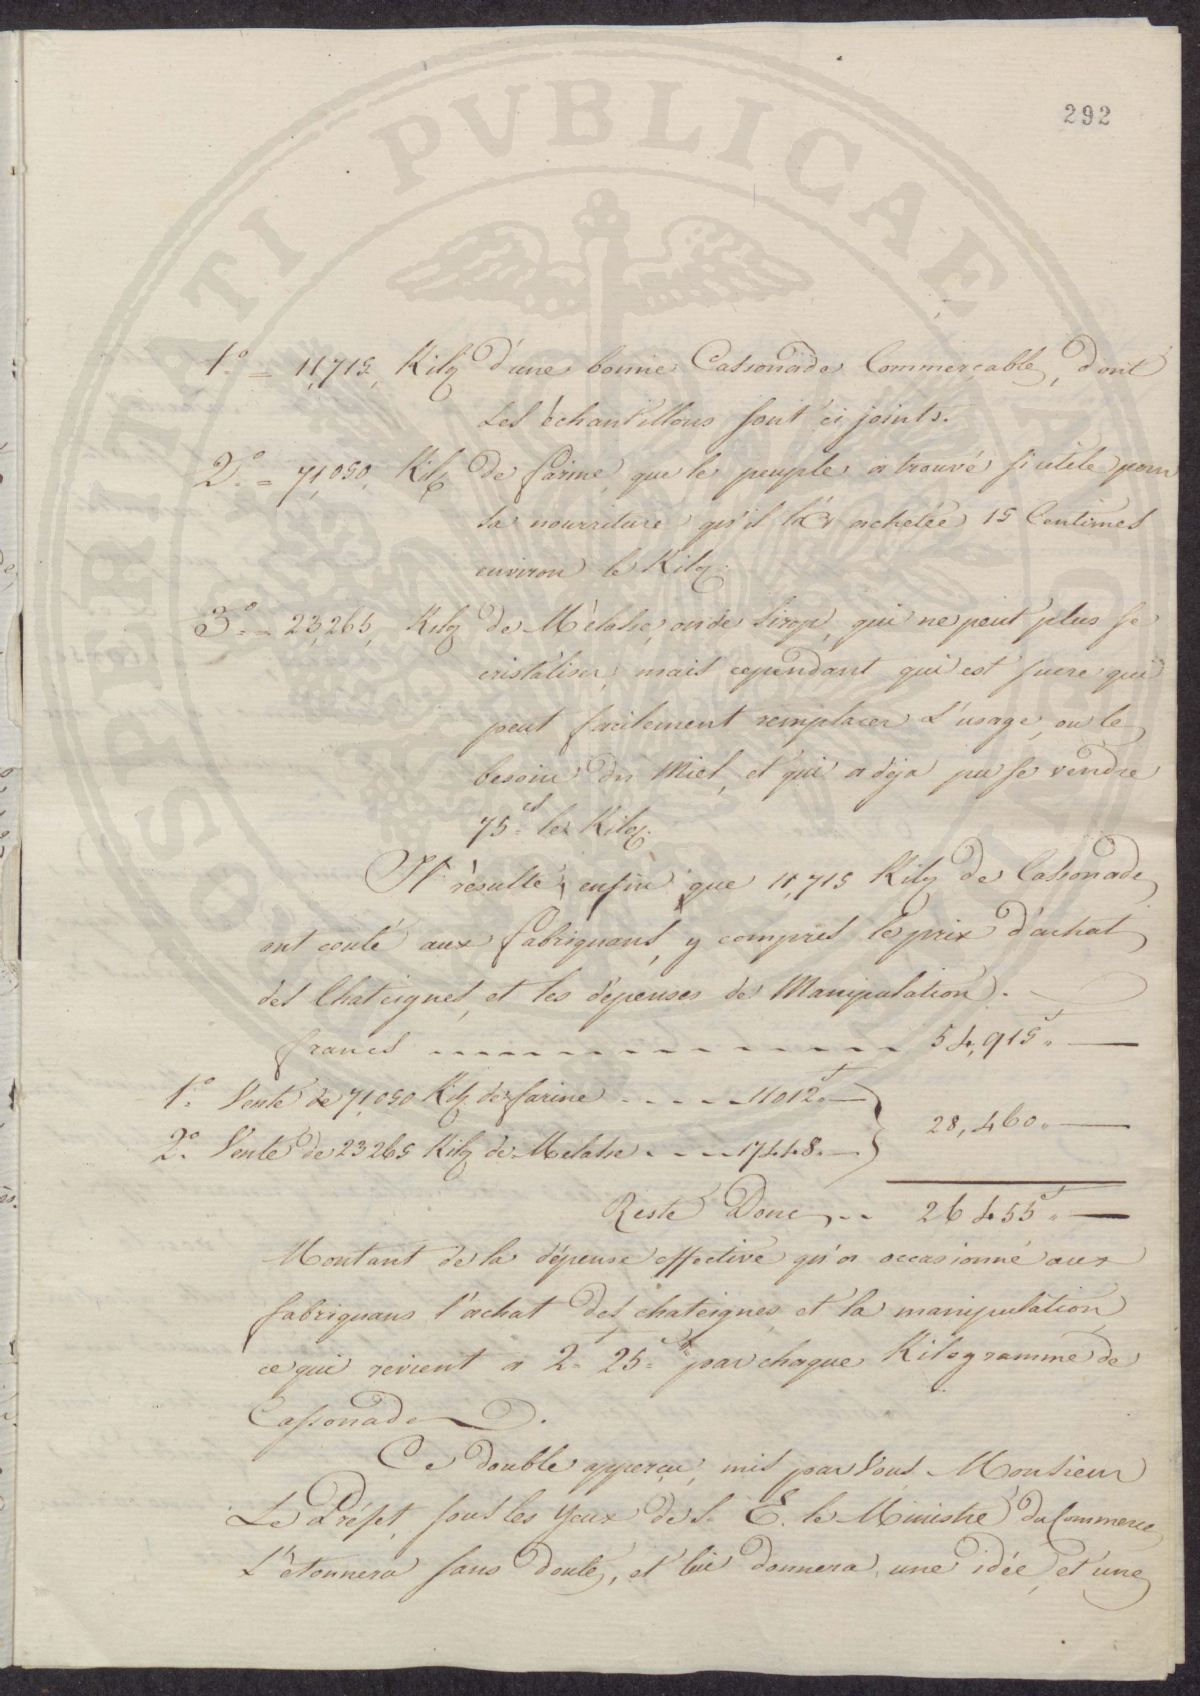 292
1.° = 11,715, Kilg d'une bonne Cassonade Commercable, dont
les échantillons sont ci joints.
2.° = 71,050, Kilg de farine que le peuple a trouvé si utile pour
sa nourriture qu'il l'a achetée 15 Centimes
environ le Kilg.
3.° = 23,265, Kilg de Mélasse, ou de Sirop, qui ne peut plus se
cristaliser, mais cependant qui est sucre qui
peut facilement remplacer L'usage, ou le
besoin du Miel, et qui a déja pu se vendre
75.cs le Kilg.
Il résulte enfin que 11,715 Kilg de Cassonade
ont couté aux fabriquans, y compris le prix d'achat
des Chateignes, et les dépenses de Manipulation.
francs 54,915.f
1.° Vente de 71,050 Kilg de farine 11012.f
28,460.
2.° Vente de 23265 Kilg de Melasse 17448.
Reste Donc 26455.f
Montant de la dépense effective qu'a occasionné aux
fabriquans l'achat des chateignes et la manipulation
ce qui revient a 2.f 25.c par chaque Kilogramme de
Cassonade.
Ce double apperçu, mis par Vous Monsieur
Le Préfet, sous les yeux de S. E. le Ministre du Commerce
L'étonnera sans doute, et lui donnera une idée, et une